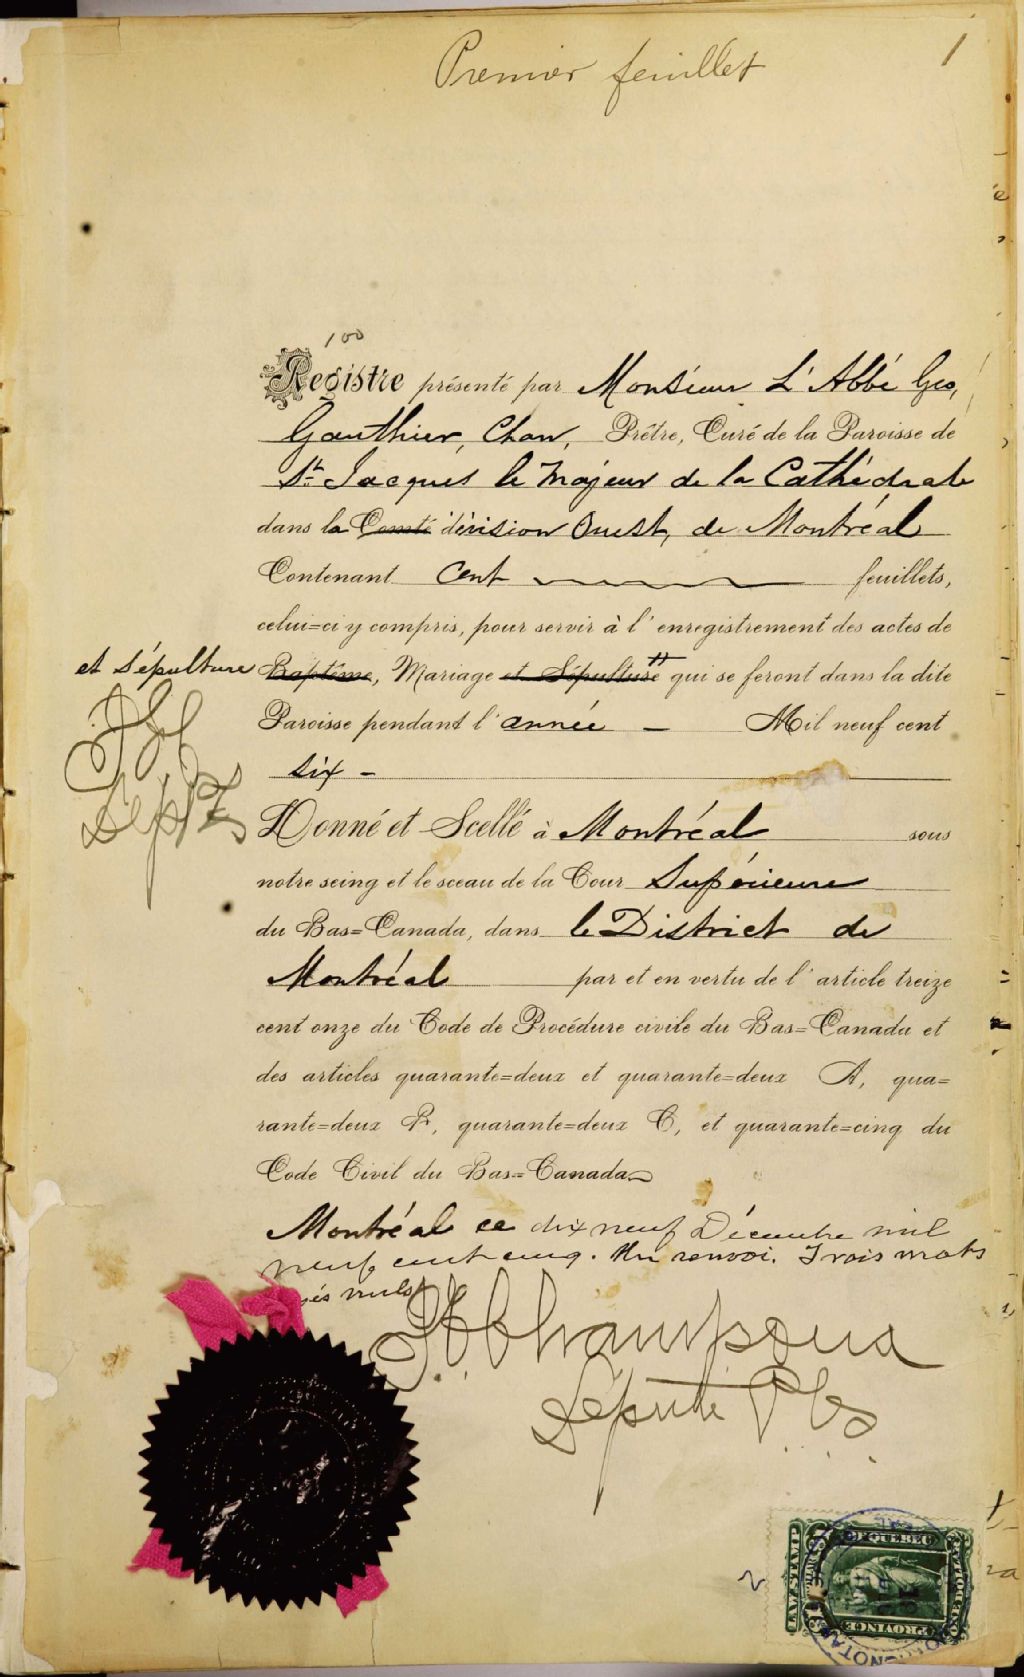 Premier feuillet
1
100
Registre présenté par Monsieur L'Abbé Geo,
Gauthier, Chan, Prêtre, Curé de la Paroisse de
St Jacques le Majeur de la Cathédrale
dans la Comté division Ouest, de Montréal
Contenant Cent feuillets,
celui=ci y compris, pour servir à l'enregistrement des actes de
et Sépulture Baptême, Mariage et Sépulture qui se feront dans la dite
Paroisse pendant l'année — Mil neuf cent
six —
Donné et Scellé à Montréal sous
notre seing et le sceau de la Cour Supérieure
du Bas=Canada, dans le District de
Montréal par et en vertu de l'article treize
cent onze du Code de Procédure civile du Bas=Canada et
des articles quarante=deux et quarante=deux A, qua=
rante=deux B, quarante=deux C, et quarante=cinq du
Code Civil du Bas=Canada
Montréal ce dix neuf Décembre mil
neuf cent cinq. Un renvoi. Trois mots
nuls
Champoux
Député P
LAW STAMP
QUEBEC
PROVINCE